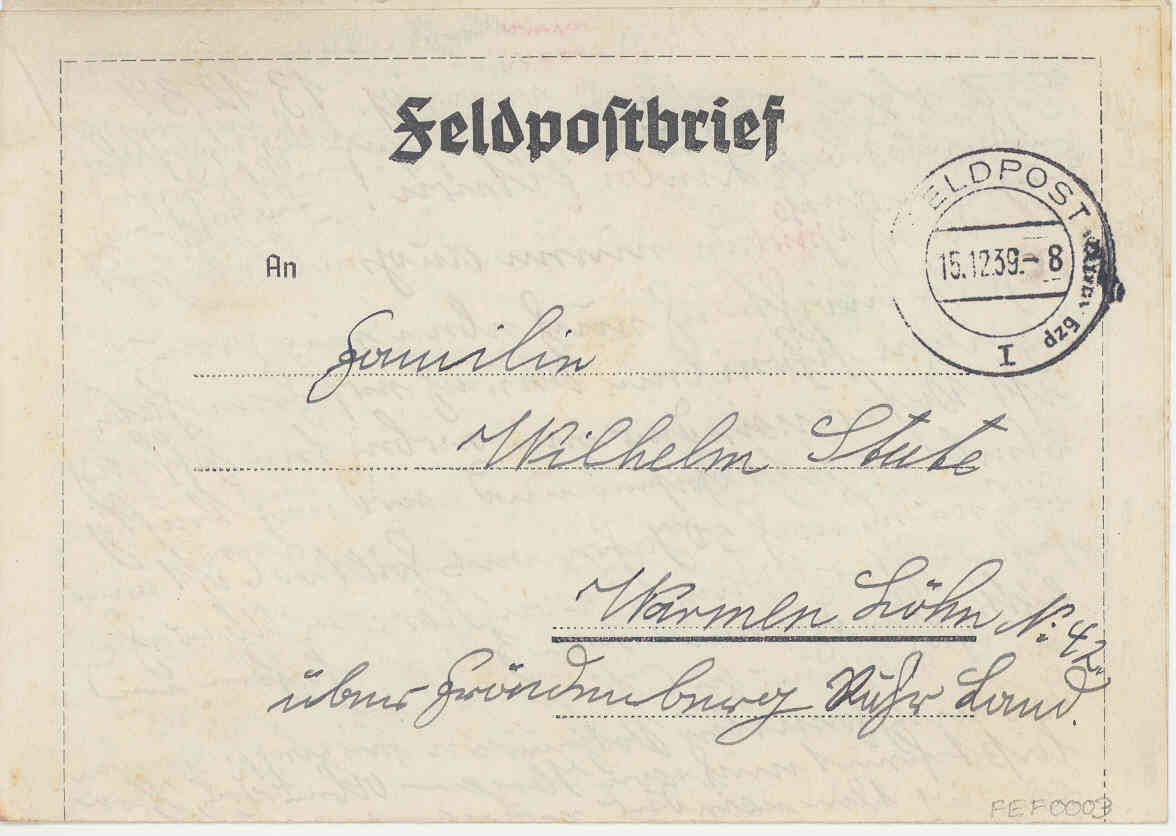 Feldpostbrief
FELDPOST
15.12.39.- 8
gzp
I
An
Familie
Wilhelm Stute
Warmen Löhn N: 42
über Fröndenberg Ruhr Land.
FEF0003